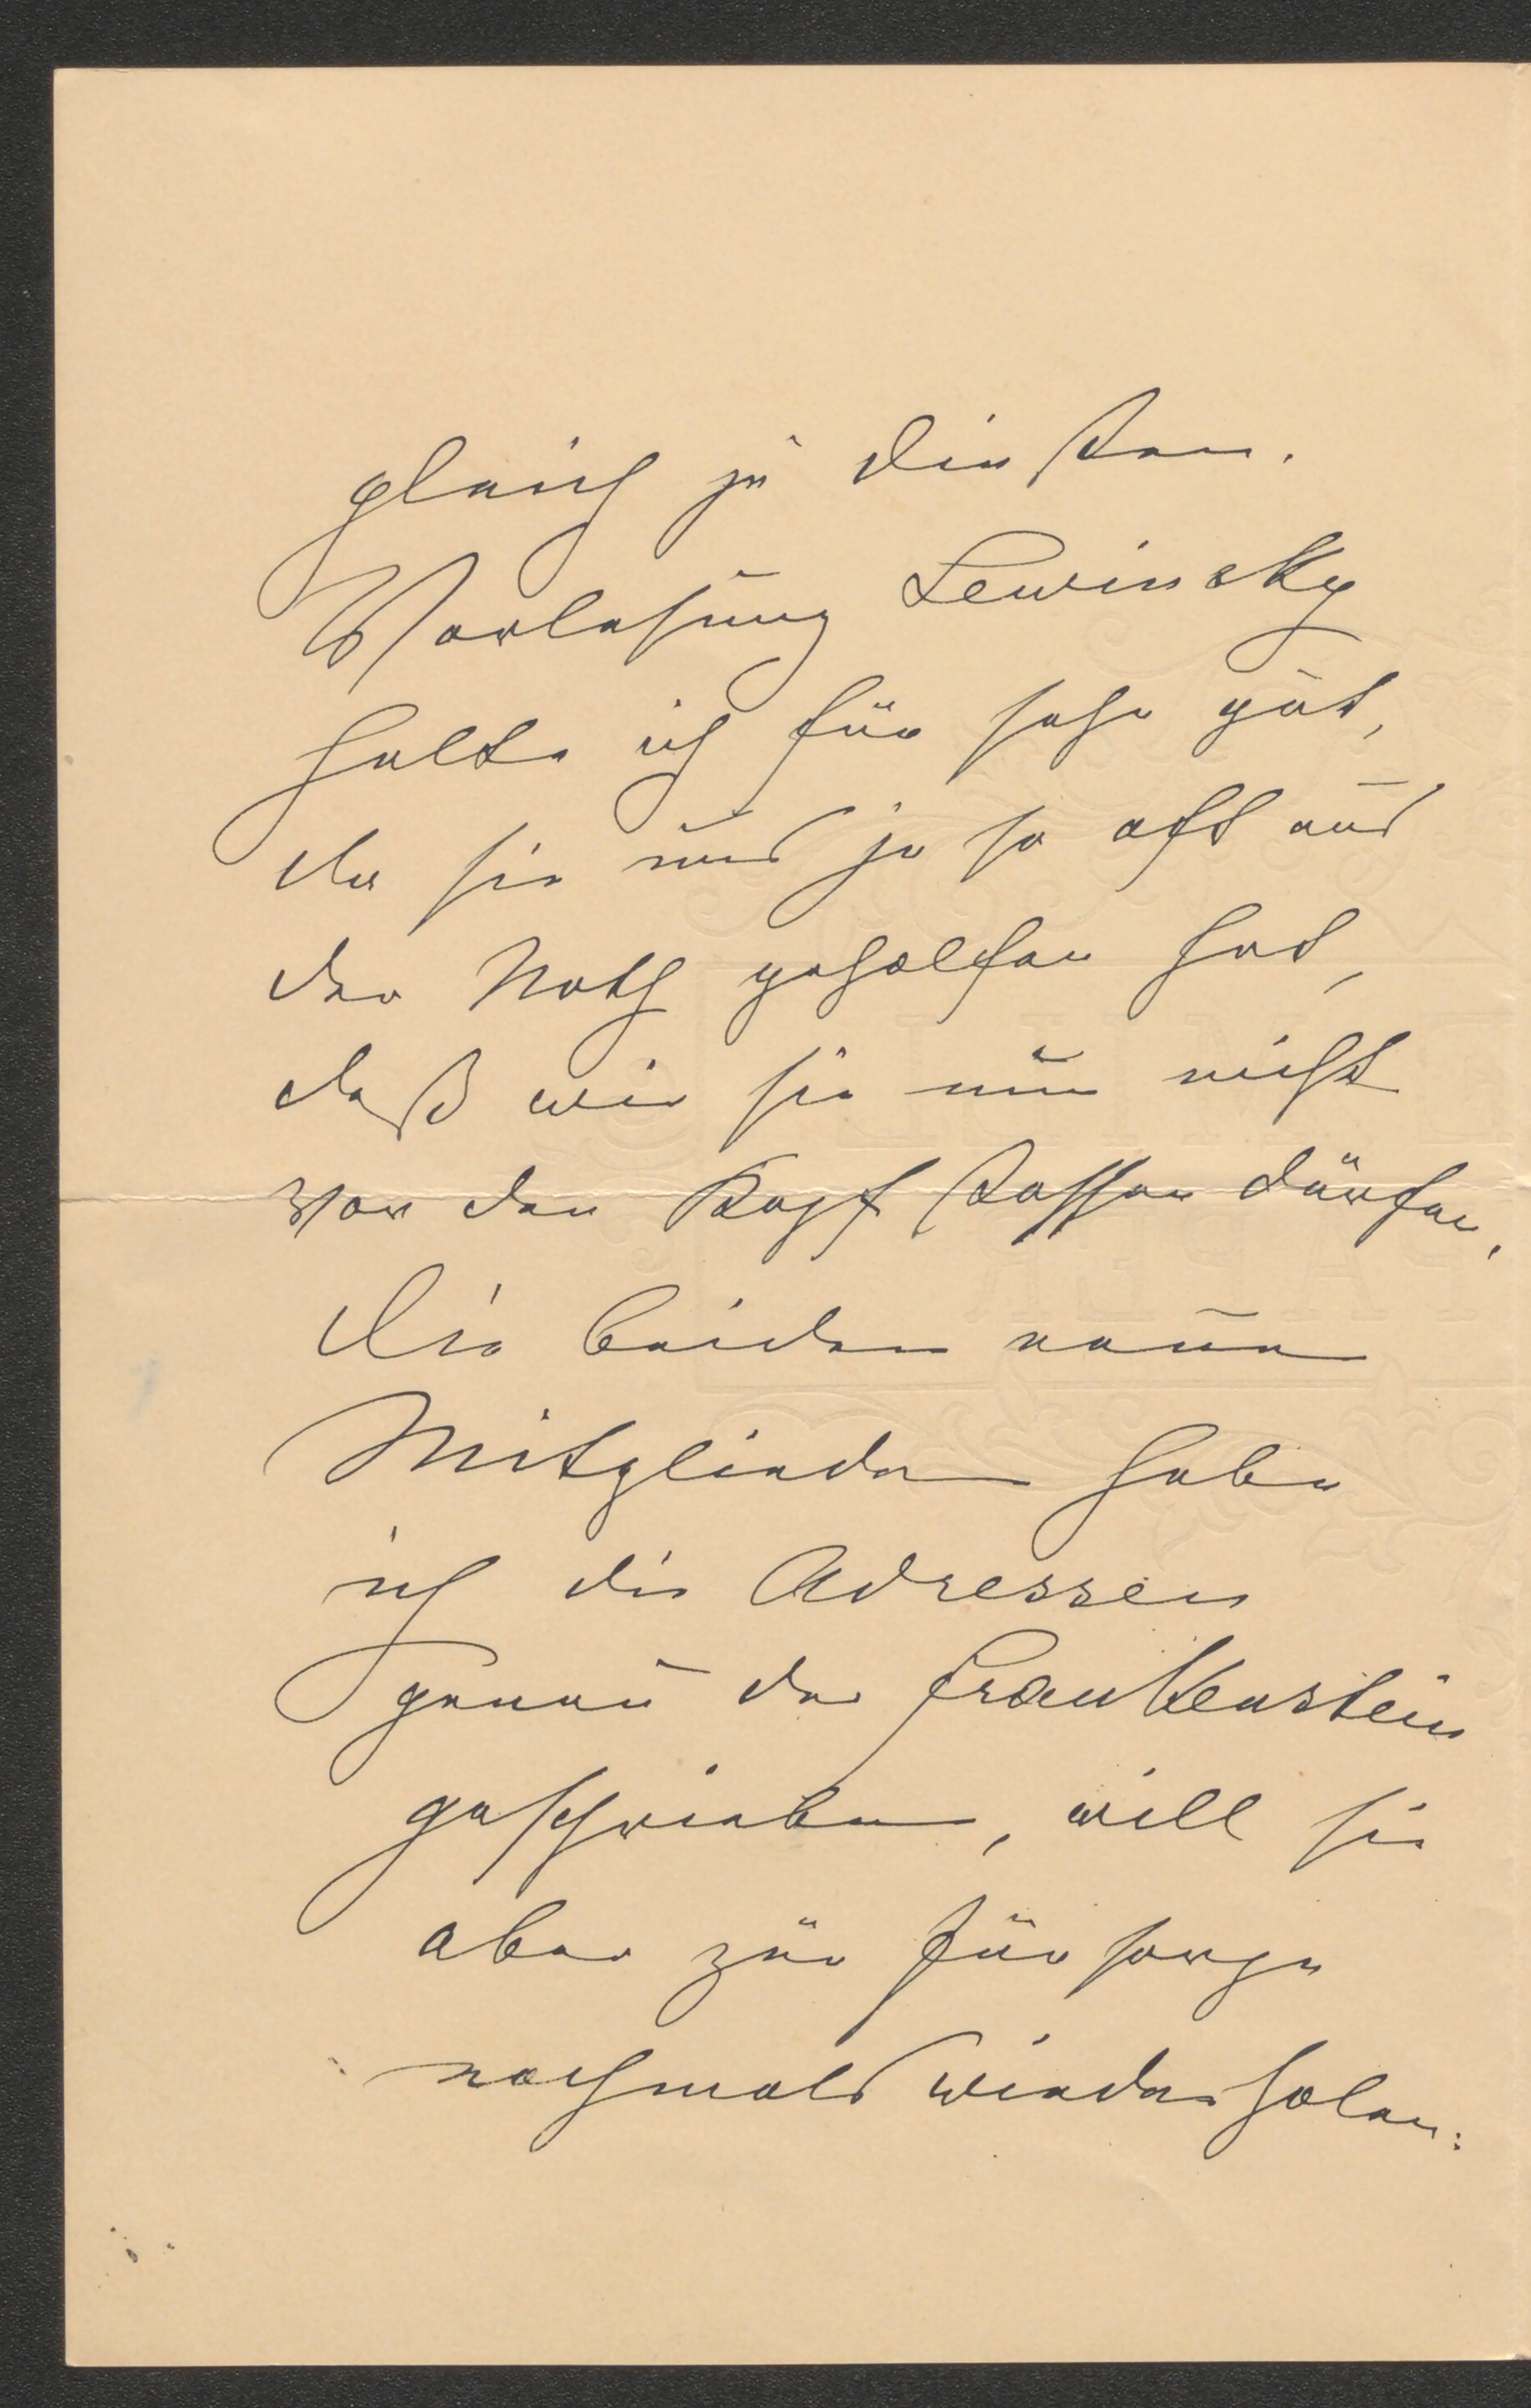 gleich zu Diensten.
Vorlesung Lewinsky
halte ich für sehr gut,
da sie uns ja so oft aus
der Noth geholfen hat,
daß wir sie nun nicht
vor den Kopf stossen dürfen.
Die beiden neuen
Mitglieder habe
ich die Adressen
genau der Frankenstein
geschrieben, will sie
aber zur Fürsorge
nochmals wiederholen: